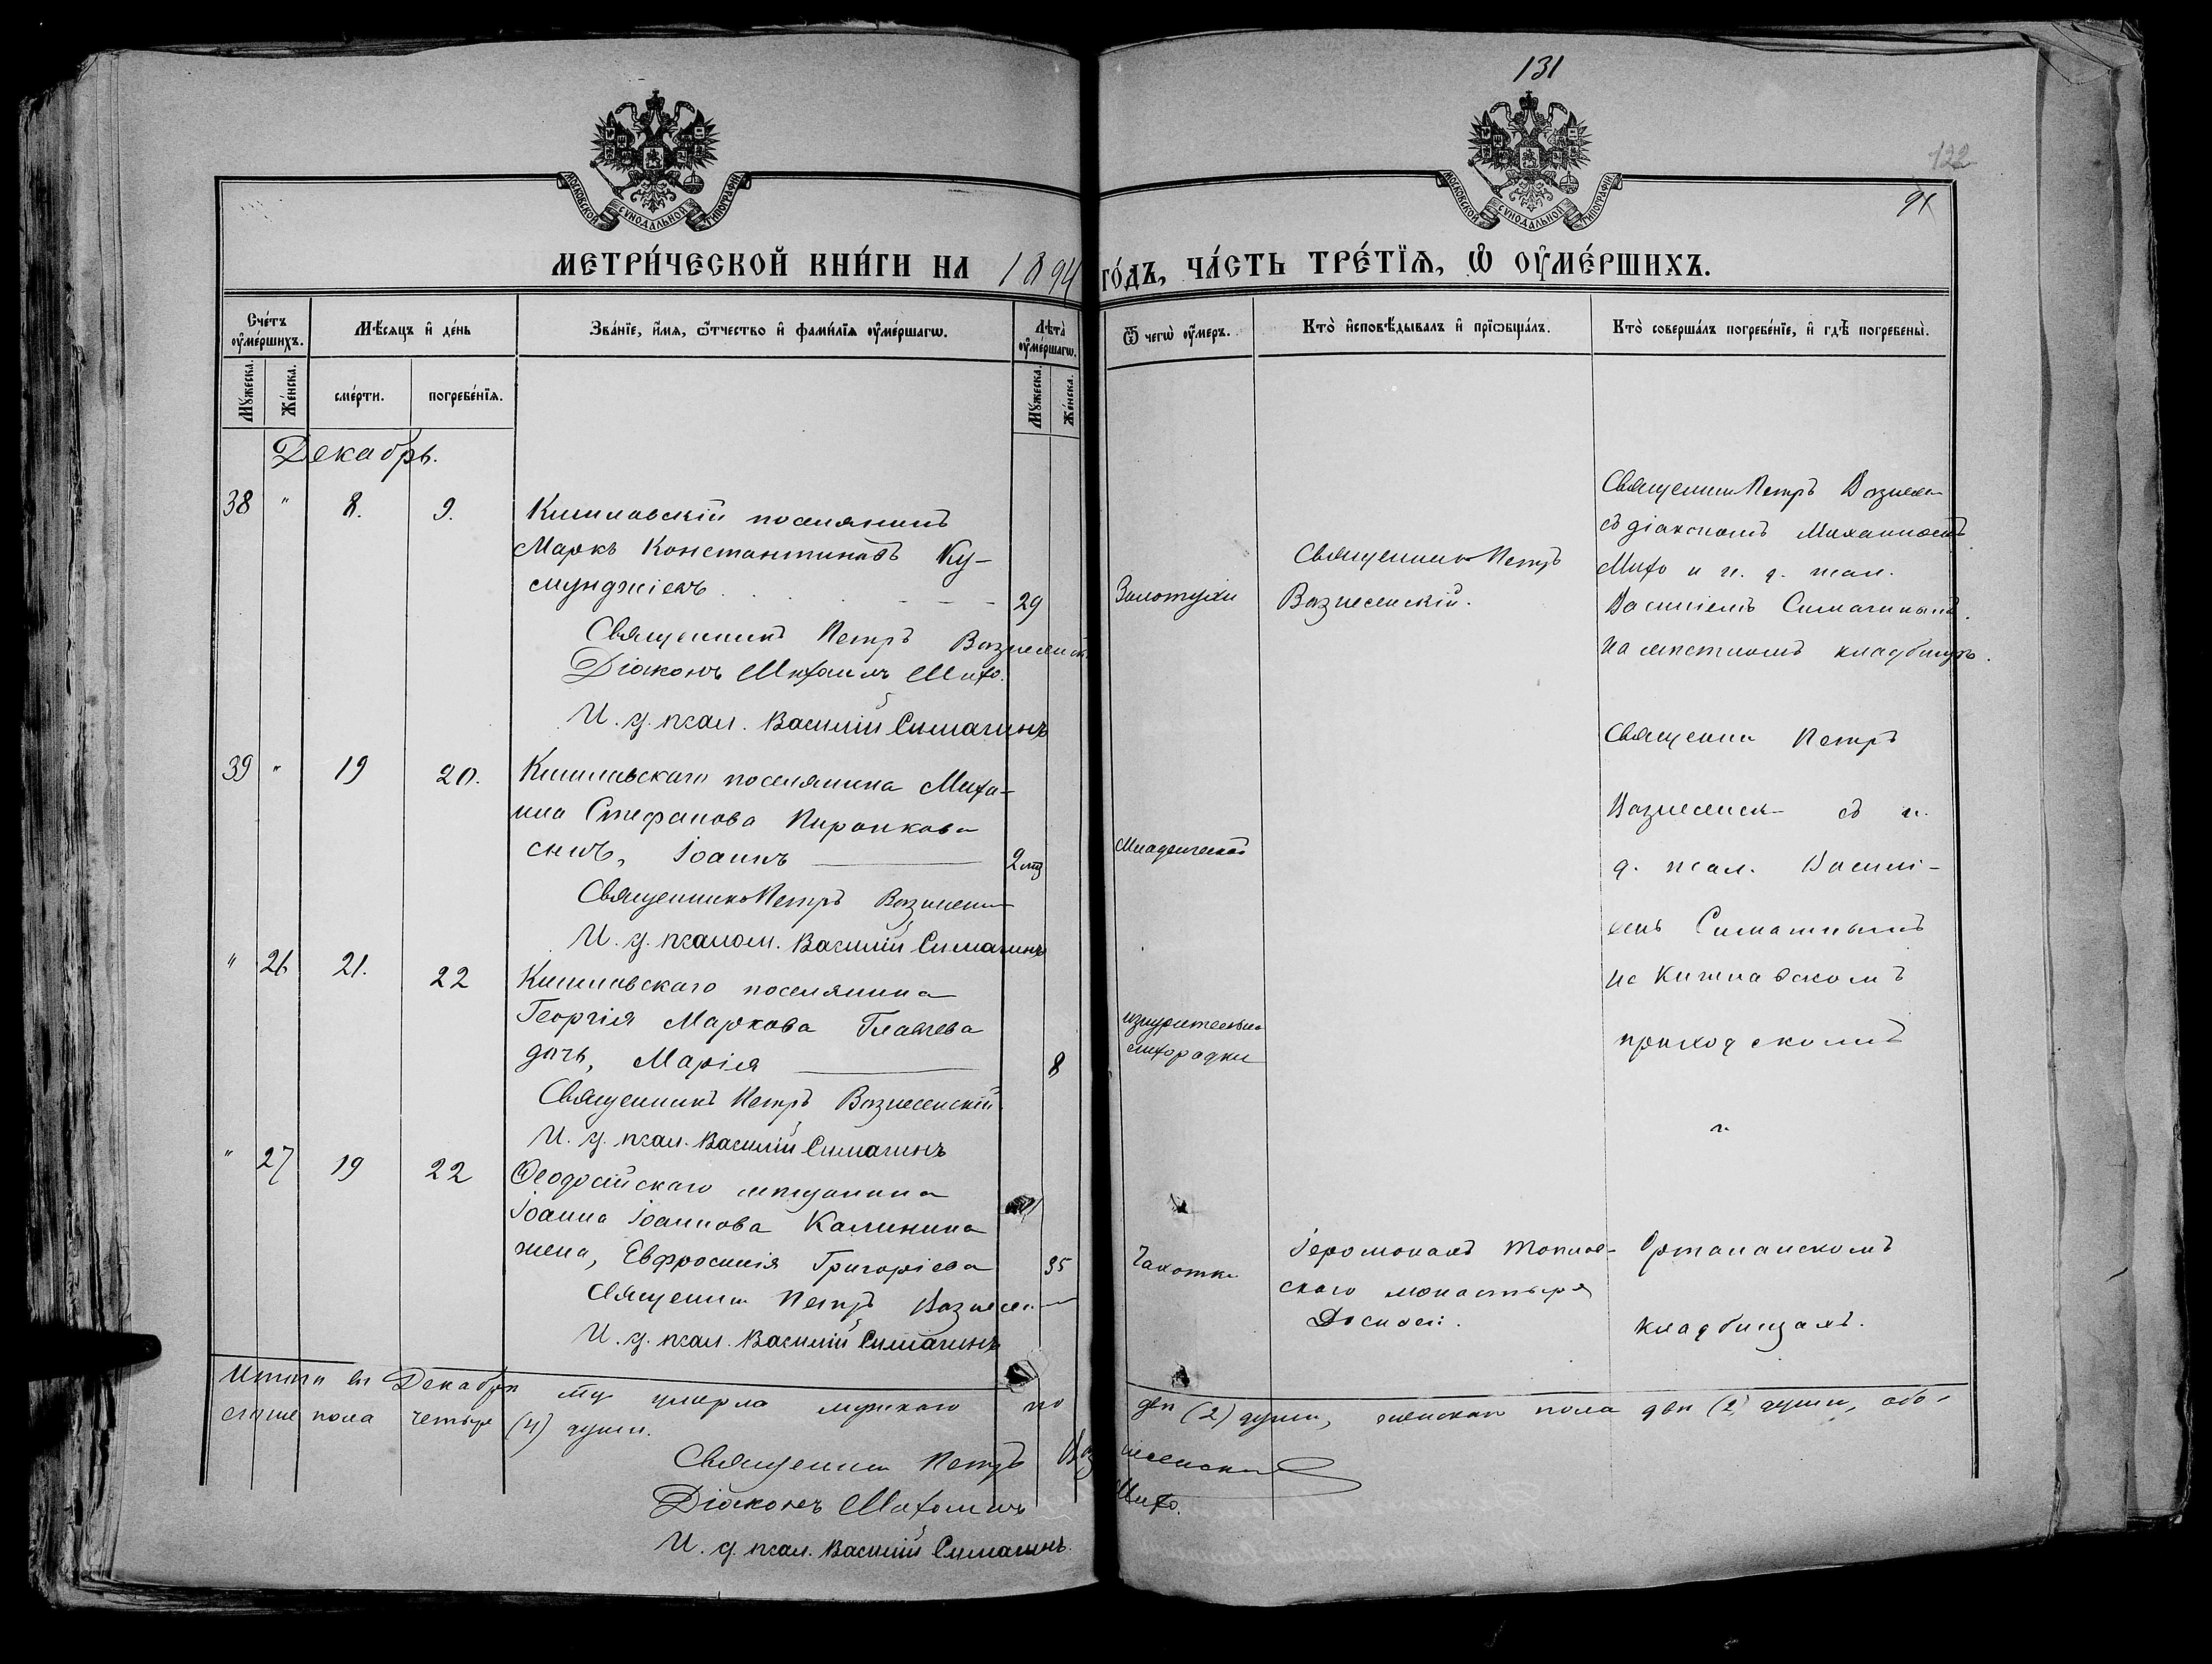 131
122
91
МОСКОВСКОЙ СѴНОДАЛЬНОЙ ТИПОГРАФІИ
МОСКОВСКОЙ СѴНОДАЛЬНОЙ ТИПОГРАФІИ
МЕТРИ́ЧЕСКОЙ КНИ́ГИ НА 1894 ГО́ДЪ, ЧА́СТЬ ТРЕ́ТЇѦ, Ѡ ОУ҆МЕ́РШИХЪ.
Сче́тъ оу҆ме́ршихъ.
Мꙋ́жеска.
Же́нска.
Мѣ́сѧцъ и҆ де́нь
сме́рти.
погребе́нїѧ.
Зва́нїе, и҆́мѧ, ѻ҆́тчество и҆ фами́лїѧ оу҆ме́ршагѡ.
Лѣта̀ оу҆ме́ршагѡ.
Мꙋ́жеска.
Же́нска.
Ѿ чегѡ̀ оу҆́меръ.
Кто̀ и҆сповѣ́дывалъ и҆ прїѡбща́лъ.
Кто̀ соверша́лъ погребе́нїе, и҆ гдѣ̀ погребены̀.
Декабрь.
38 " 8. 9.
Кишлавскій поселянинъ
Маркъ Константиновъ Ку-
смунджіевъ 29
Священникъ Петръ Вознесенск
Діаконъ Михаилъ Михо.
И. д. псал. Василій Симагинъ
Золотухи
Священникъ Петръ
Вознесенскій.
Священник Петръ Вознесен
съ діакономъ Михаиломъ
Михо и и. д. псал.
Василіемъ Симагинымъ.
На мѣстномъ кладбищѣ.
39 " 19 20.
Кишлавскаго поселянина Миха-
ила Стефанова
сынъ, Іоаннъ 2 мѣ
Священникъ Петръ Вознесен
И. д. псалом. Василій Симагинъ
Младенческой
Священник Петръ
Вознесенск съ и.
д. псал. Василі-
емъ Симагинымъ
На Кишлавскомъ
приходскомъ
и
Ортананскомъ
кладбищахъ.
" 26 21. 22
Кишлавскаго поселянина
Георгія Маркова
дочь, Марія 8
Священникъ Петръ Вознесенскій
И. д. псал. Василій Симагинъ
изнурительной
лихорадки
" 27 19 22
Ѳеодосійскаго мѣщанина
Іоанна Іоаннова Калинина
жена, Евфросинія Григоріева 35
Священник Петръ Вознесен
И. д. псал. Василій Симагинъ
Чахотки
Іеромонахъ Топлов-
скаго монастыря
Итого въ Декабрѣ мцѣ умерло мужскаго по двѣ (2) души, женскаго пола двѣ (2) души, обо-
его пола четыре (4) души.
Священник Петръ Вознесенскій
Діаконъ Михаилъ Михо.
И. д. псал. Василій Симагинъ.